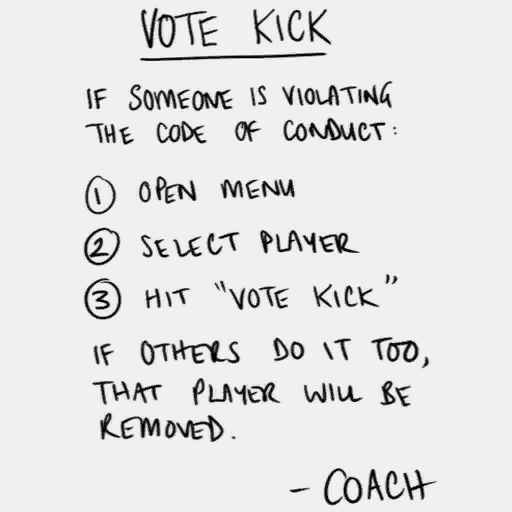 VOTE KICK
IF SOMEONE IS VIOLATING
THE CODE OF CONDUCT:
1 OPEN MENU
2 SELECT PLAYER
3 HIT "VOTE KICK"
IF OTHERS DO IT TOO,
THAT PLAYER WILL BE
REMOVED.
- COACH